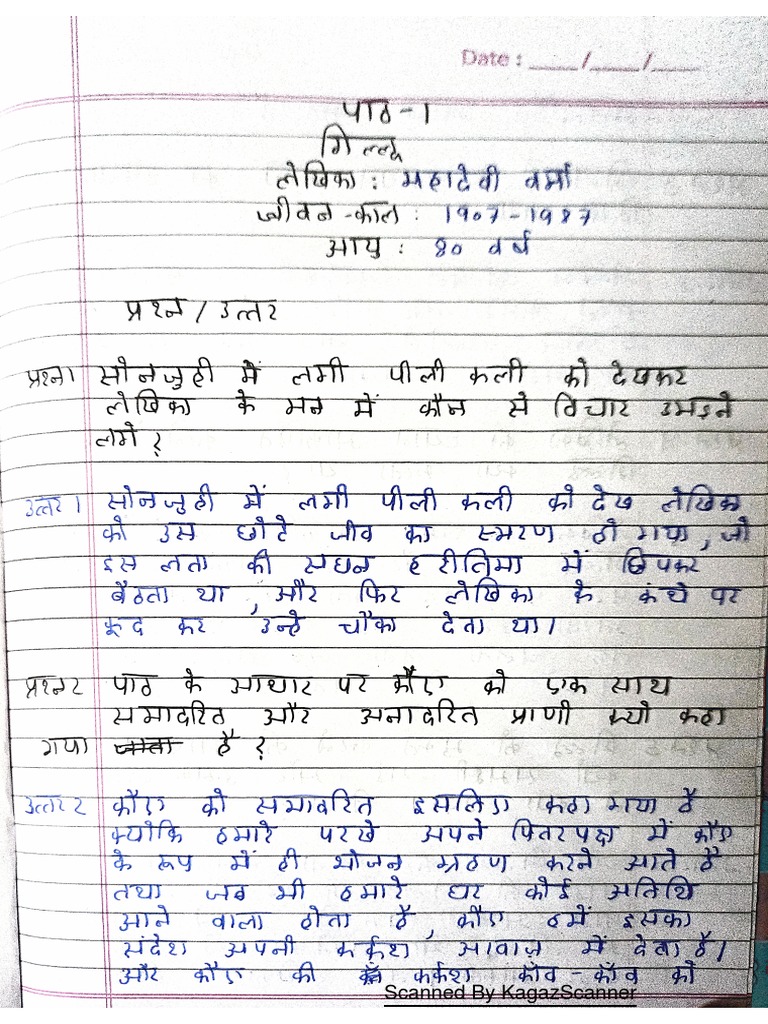 Date : ___/___/___
पाठ - 1
गिल्लू
लेखिका : महादेवी वर्मा
जीवन - काल : 1907 - 1987
आयु : 80 वर्ष
प्रश्न / उत्तर
प्रश्न1 सोनजुही में लगी पीली कली को देखकर
लेखिका के मन में कौन से विचार उमड़ने
लगे ?
उत्तर 1 सोनजुही में लगी पीली कली को देख लेखिका
को उस छोटे जीव का स्मरण हो गया, जो
इस लता की सघन हरीतिमा में छिपकर
बैठता था, और फिर लेखिका के कंधे पर
कूद कर उन्हे चौंका देता था।
प्रश्न2 पाठ के आधार पर कौए को एक साथ
समादरित और अनादरित प्राणी क्यो कहा
गया जाता है ?
उत्तर 2 कौए को समादरित इसलिए कहा गया है
क्योकि हमारे परखे अपने पितरपक्ष में कौए
के रूप में ही भोजन ग्रहण करने आते है
तथा जब भी हमारे घर कोई अतिथि
आने वाला होता है, कौए हमें इसका
संदेश अपनी कर्कश आवाज़ में देता है।
और कौए की कर्कश काँव - काँव को
Scanned By KagazScanner